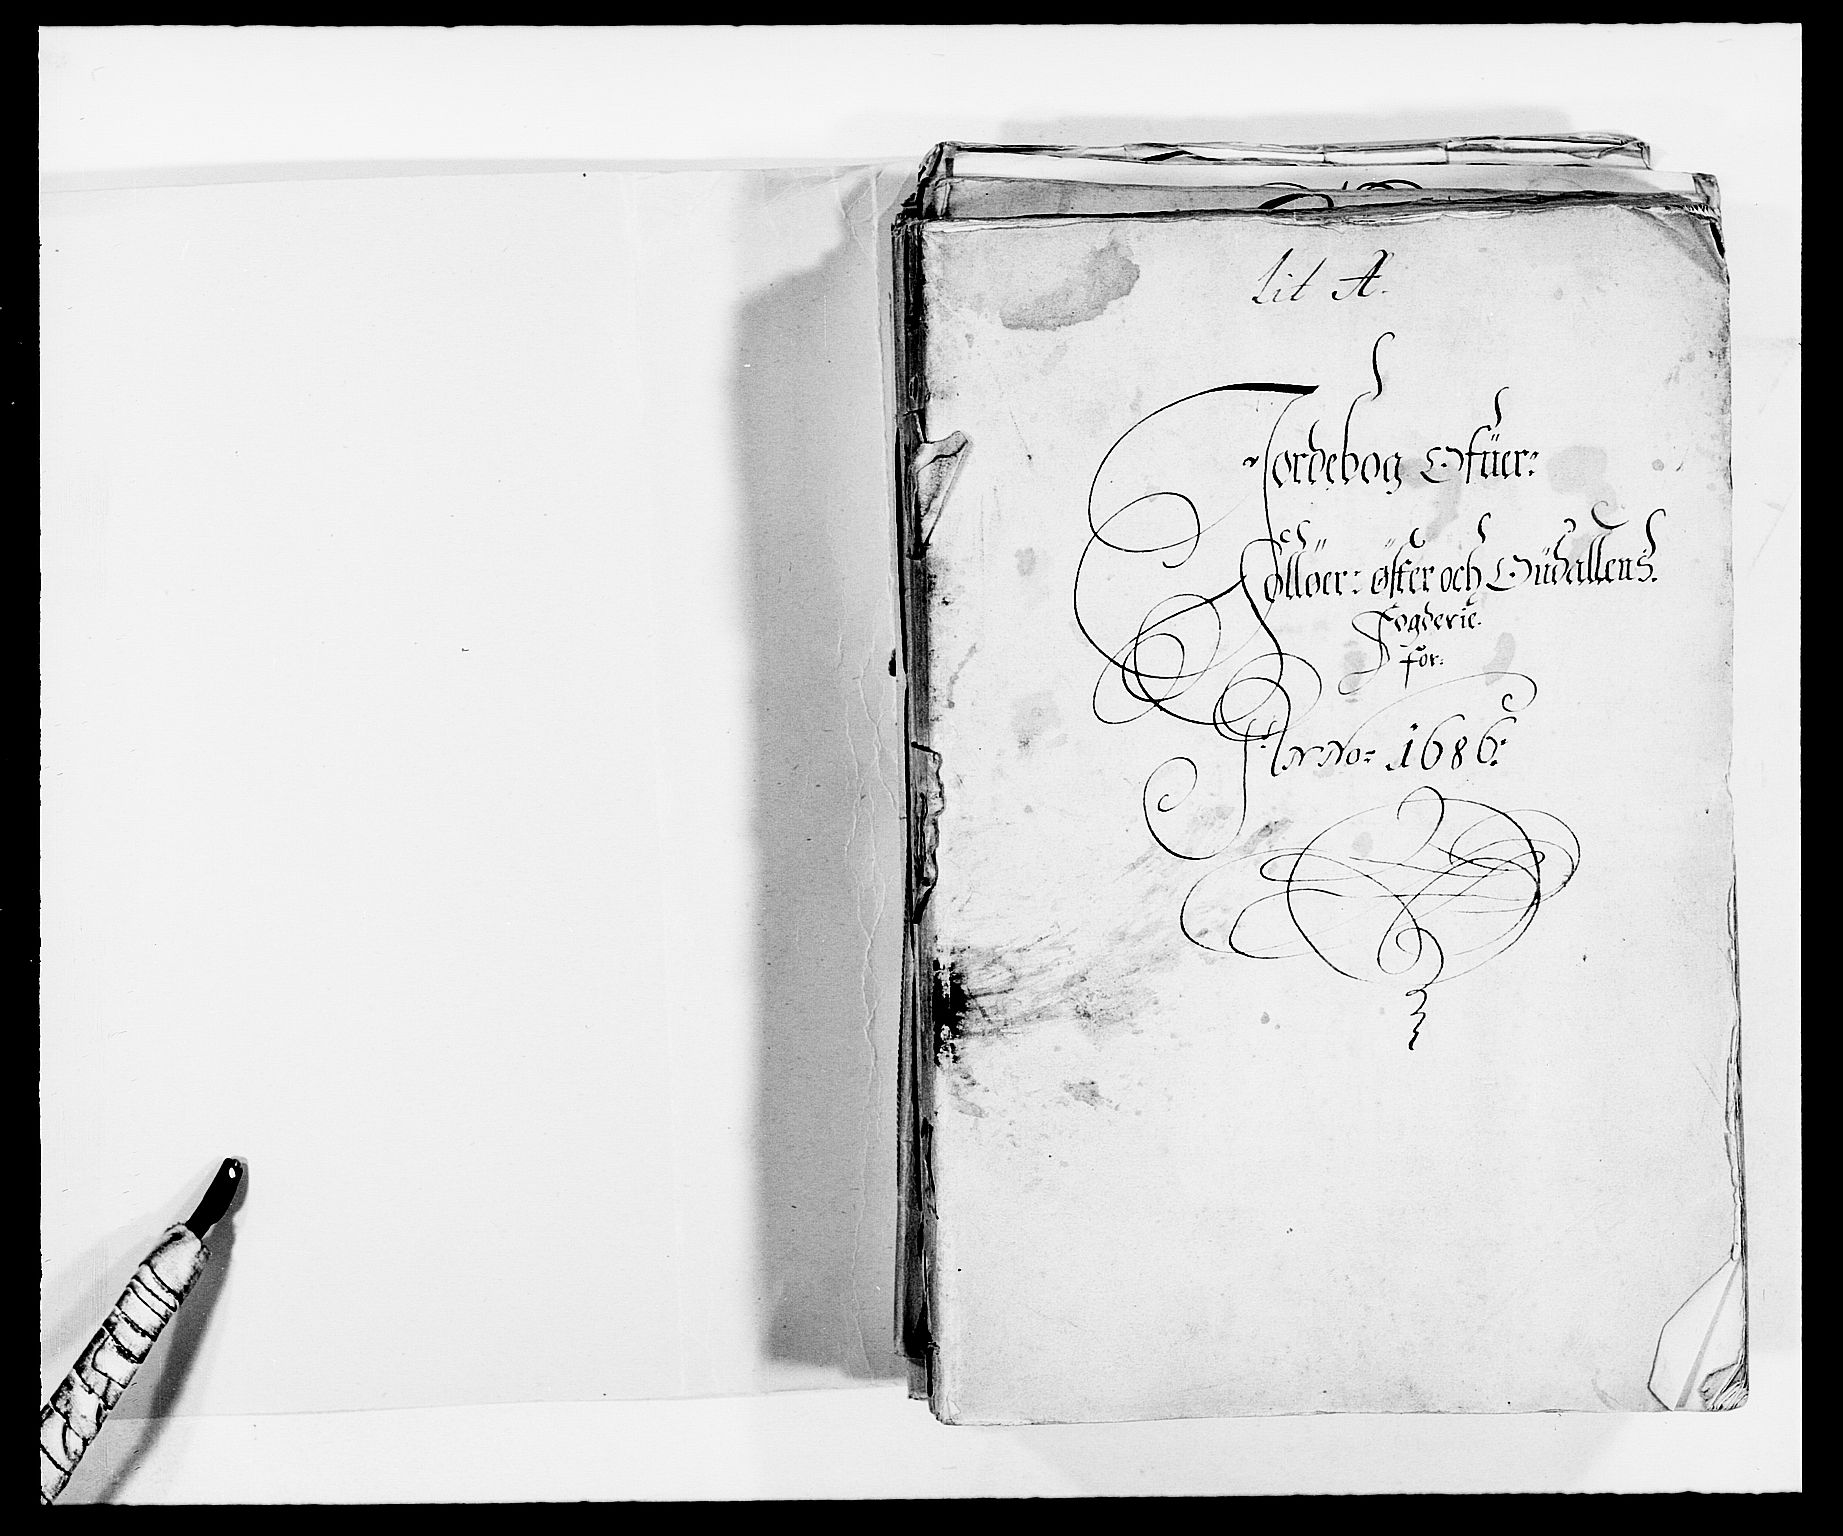 Lit A.
Jordebog Ofüer:
Sølløer: øster och Oüdallens.
Fogderie.
for.
Anno: 1686: